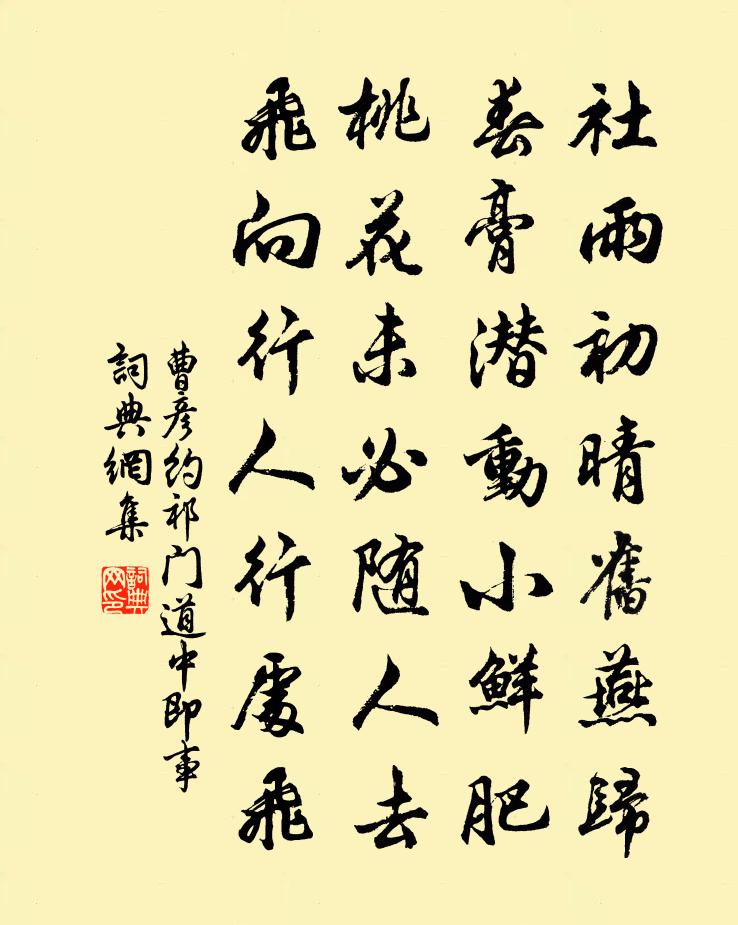 社雨初晴舊燕歸
春膏潜動小鮮肥
桃花未必随人去
飛向行人行處飛
曹彦約祁门道中即事
詞典網集
詞典网印